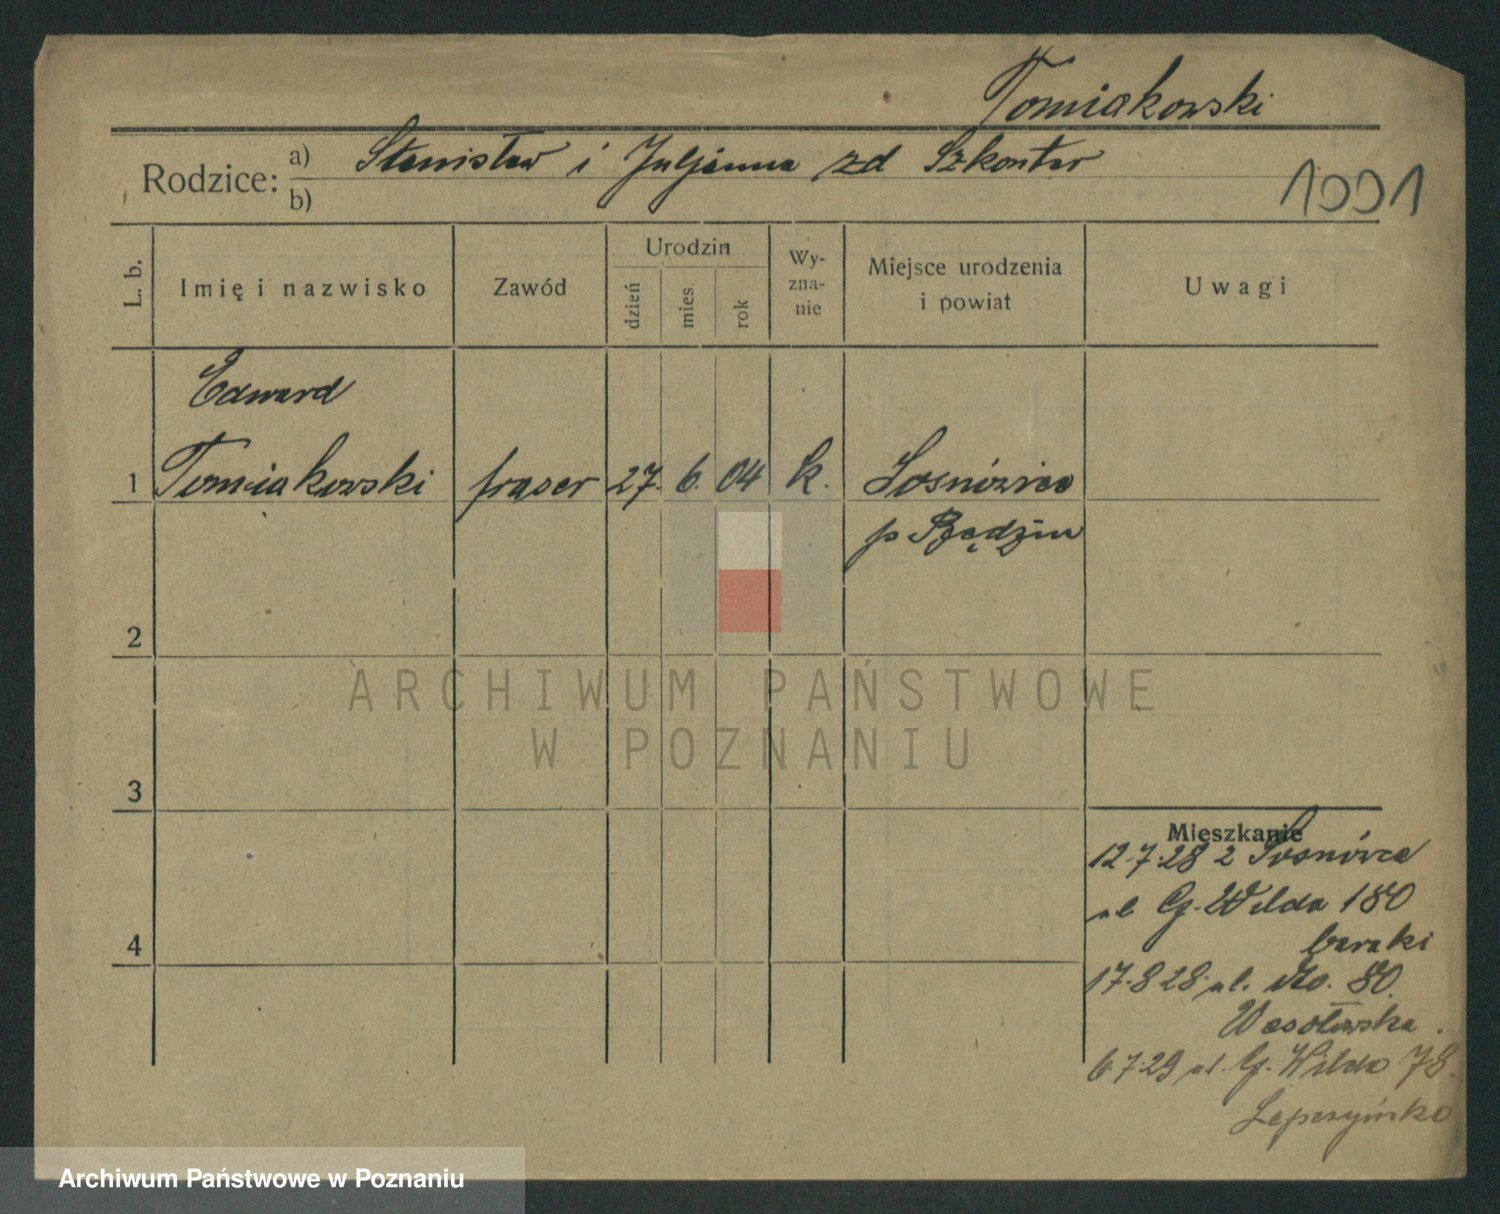 Tomiakowski
Rodzice: a) Stanisław i Juljanna zd Szkonter
b)
1001
L. b.
Imię i nazwisko
Zawód
Urodzin
dzień
mies.
rok
Wy-
zna-
nie
Miejsce urodzenia
i powiat
Uwagi
Edward
1 Tomiakowski fraser 27. 6. 04 k. Sosnówice
p Będzin
2
ARCHIWUM PAŃSTWOWE
W POZNANIU
3
Mieszkanie
12.7.28 z Sosnówca
ul G. Wilda 180
baraki
4
17.8.28 ul. 80.
Wesołowska.
6.7.29 ul. G. Wilda 78.
Lepczyńska
Archiwum Państwowe w Poznaniu